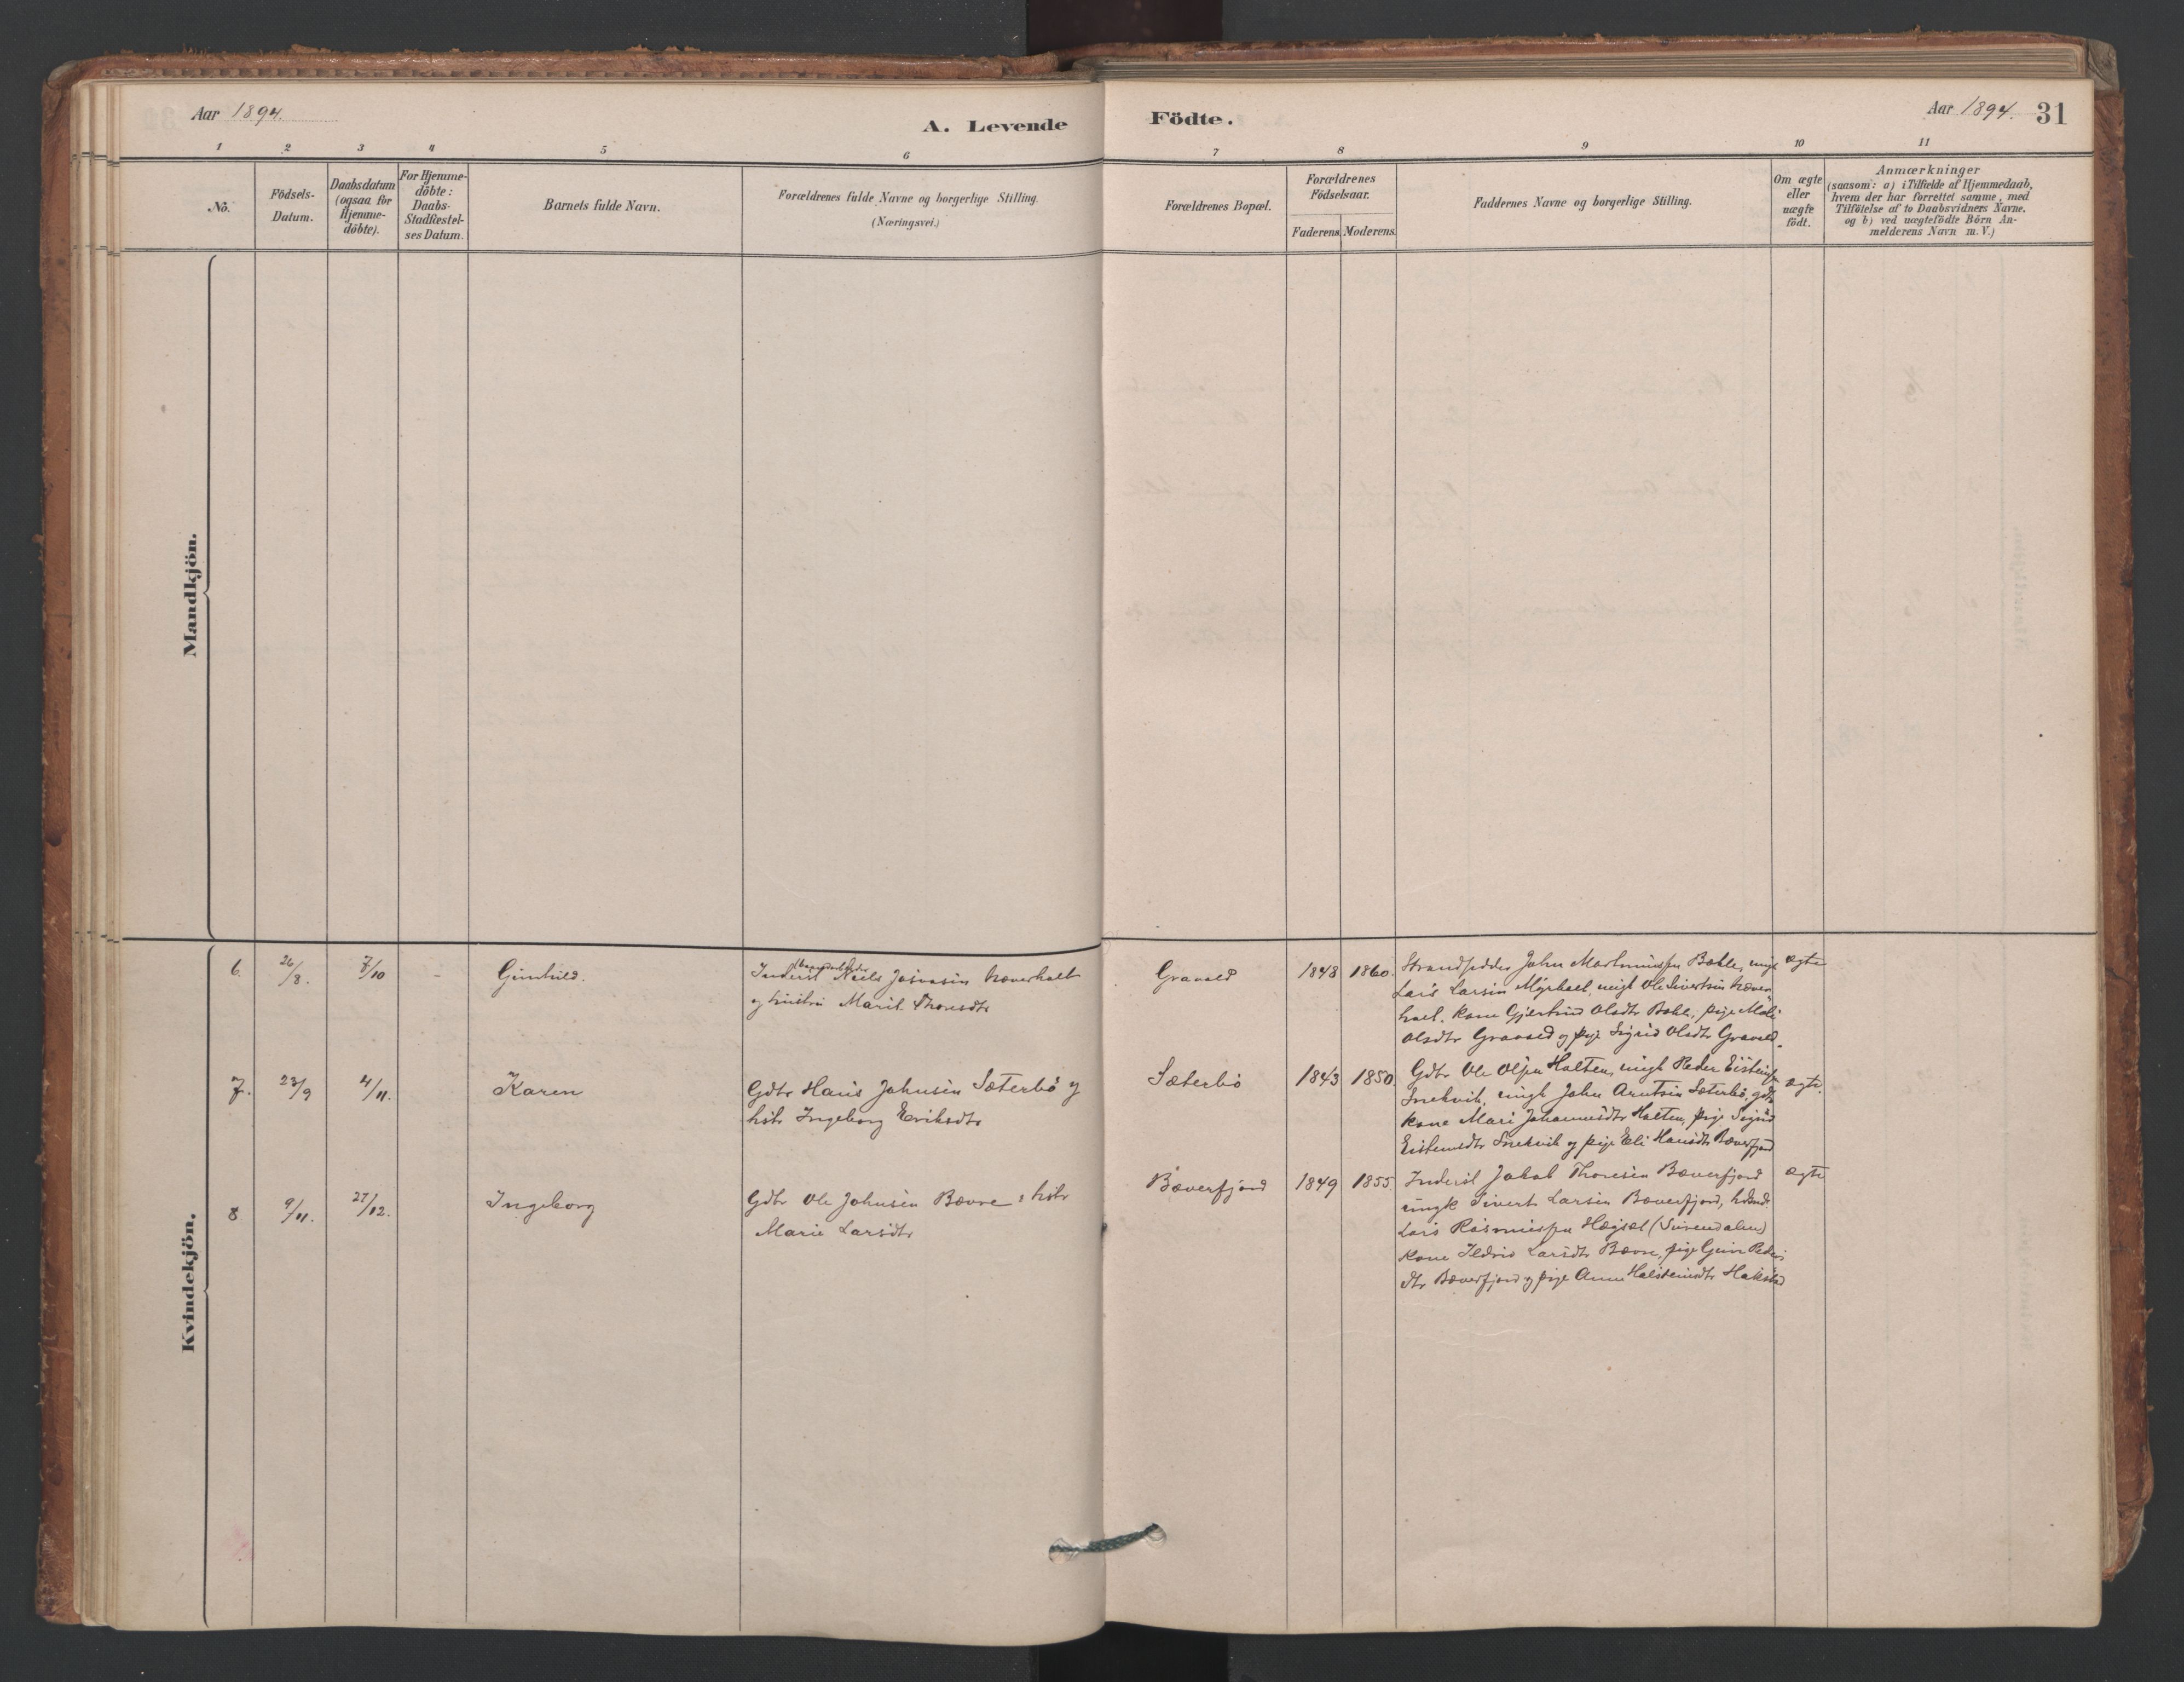 Aar 1894.
A. Levende Födte.
Aar 1894. 31
1 2 3 4 5 6 7 8 9 10 11
No.
Födsels-
Datum.
Daabsdatum
(ogsaa for
Hjemme-
döbte).
For Hjemme-
döbte:
Daabs-
Stadfæstel-
ses Datum.
Barnets fulde Navn.
Forældrenes fulde Navne og borgerlige Stilling.
(Næringsvei.)
Forældrenes Bopæl.
Forældrenes
Födselsaar.
Faderens. Moderens.
Faddernes Navne og borgerlige Stilling.
Om ægte
eller
uægte
födt.
Anmærkninger
(saasom: a) i Tilfælde af Hjemmedaab,
hvem der har forrettet samme, med
Tilföielse af to Daabsvidners Navne.
og b) ved uægtefödte Börn An-
melderens Navn m. V.)
Mandkjön.
Kvindekjön.
6. 26/8. 7/10 - Gunhild.
Inderst Niels
og hustru Marit Thoresdtr
Gravold 1848 1860.
Strandsidder John Bøhle, ungk
Lars Larsen ungk Ole Sivertsen
Kone Gjertrud Olsdtr Bøhle, pige Mali
Olsdtr Gravold og pige Sigrid Olsdtr Gravold.
ægte
7. 23/9 4/11. Karen
Gdbr Hans Johnsen Sæterbö og
hstr Ingeborg Eriksdtr
Sæterbö 1843 1850.
Gdbr Ole Olsen Halten, ungk Peder
Snekvik, ungk John Arntsen Sæterbö, gdb
kone Mari Johannesdtr Halten, pige Sigrid
Eistensdtr Snekvik og pige Eli Hansdtr Bæverfjord
ægte.
8 9/11. 27/12. Ingeborg
Gdbr Ole Johnsen Bævre & hstr
Marie Larsdtr
Bæverfjord 1849 1855
Inderst Jakob Thoresen Bæverfjord
ungk Sivert Larsen Bæverfjord,
Lars Rasmussen (Surendalen)
Kone Ildrid Larsdtr Bævre, pige Guru Peders
dtr Bæverfjord og pige Anne Halstensdtr
ægte